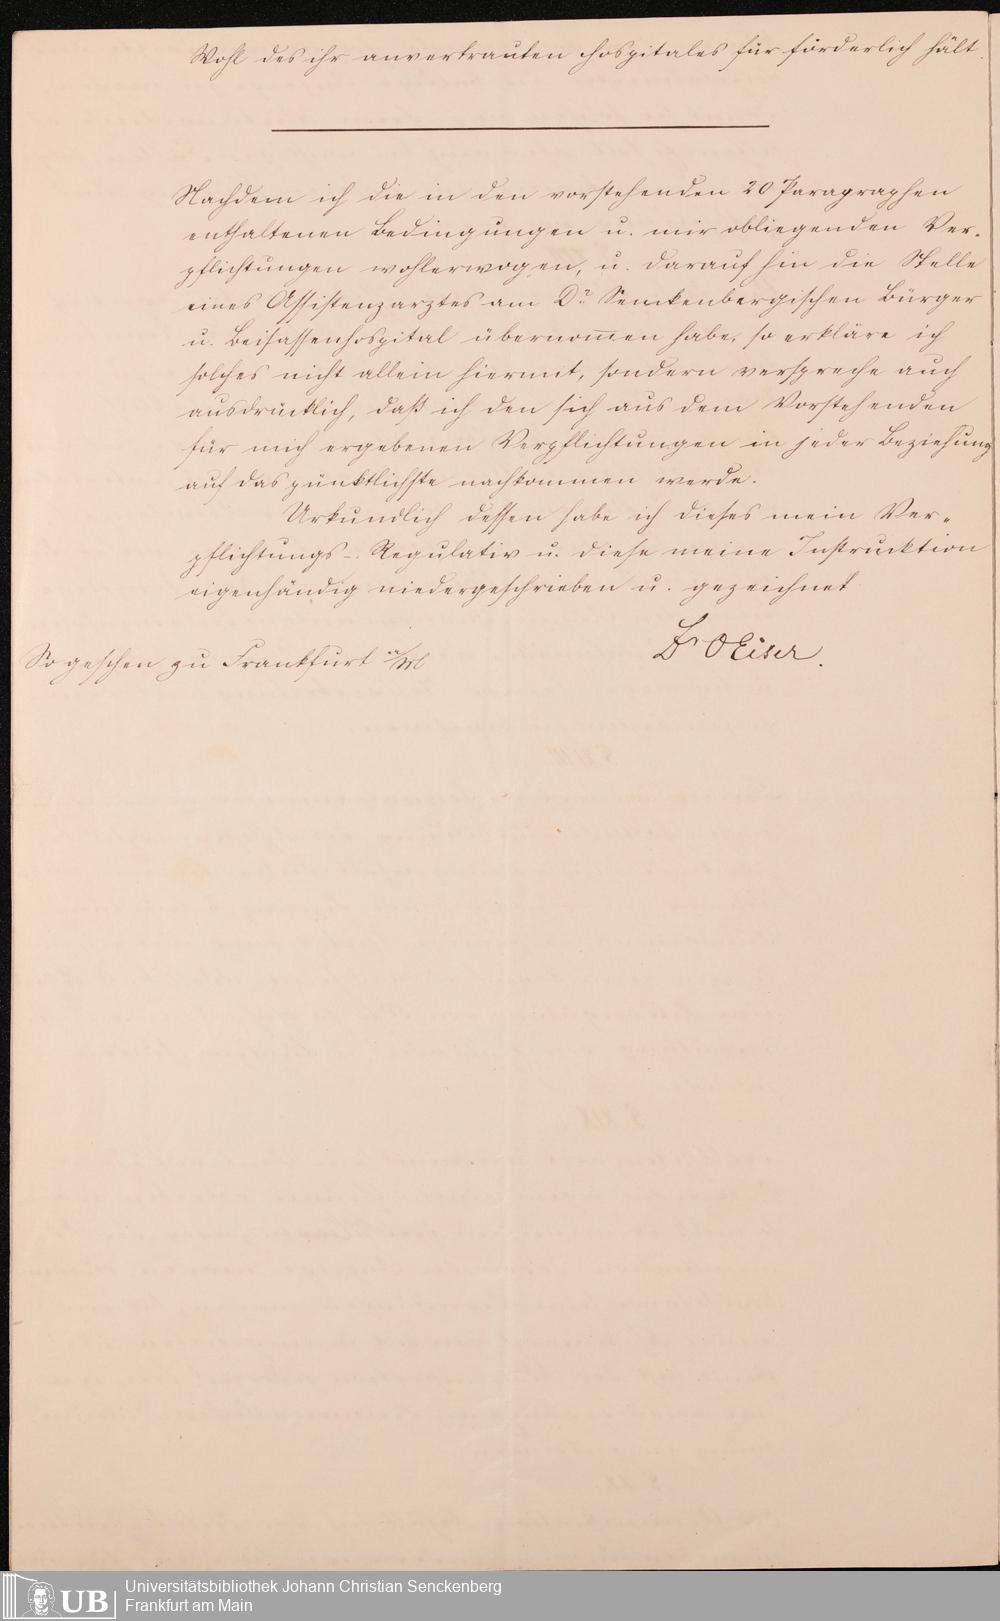 Wohl des ihr anvertrauten Hospitales für förderlich hält.
Nachdem ich die in den vorstehenden 20 Paragraphen
enthaltenen Bedingungen u. mir obliegenden Ver-
pflichtungen wohlerwogen, u. darauf hin die Stelle
eines Assistenzarztes am Dr. Senckenbergischen Bürger
u. Beisassenhospital übernom̅en habe, so erkläre ich
solches nicht allein hiermit, sondern verspreche auch
ausdrücklich, daß ich den sich aus dem Vorstehenden
für mich ergebenen Verpflichtungen in jeder Beziehung
auf das pünktlichste nachkommen werde.
Urkundlich dessen habe ich dieses mein Ver-
pflichtungs-Regulativ u. diese meine Instrucktion
eigenhändig niedergeschrieben u. gezeichnet
Dr O Eiser.
So geschen zu Frankfurt a/M
Universitätsbibliothek Johann Christian Senckenberg
Frankfurt am Main
UB